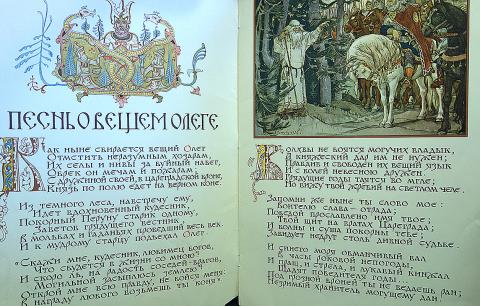 ПЕСНЬ О ВЕЩЕМ ОЛЕГЕ
Как ныне сбирается вещий Олег
Отмстить неразумным хозарам,
Их селы и нивы за буйный набег
Обрек он мечам и пожарам;
С дружиной своей, в цареградской броне,
Князь по полю едет на верном коне.
Из темного леса, навстречу ему,
Идет вдохновенный кудесник,
Покорный Перуну старик одному,
Заветов грядущего вестник,
В мольбах и гаданьях проведший весь век.
И к мудрому старцу подъехал Олег.
«Скажи мне, кудесник, любимец богов,
Что сбудется в жизни со мною?
И скоро ль, на радость соседей-врагов,
Могильной засыплюсь землею?
Открой мне всю правду, не бойся меня:
В награду любого возьмешь ты коня».
Волхвы не боятся могучих владык,
А княжеский дар им не нужен;
Правдив и свободен их вещий язык
И с волей небесною дружен.
Грядущие годы таятся во мгле;
Но вижу твой жребий на светлом челе.
Запомни же ныне ты слово мое:
Воителю слава — отрада;
Победой прославлено имя твое;
Твой щит на вратах Цареграда;
И волны и суша покорны тебе;
Завидует недруг столь дивной судьбе.
И синего моря обманчивый вал
В часы роковой непогоды,
И пращ, и стрела, и лукавый кинжал
Щадят победителя годы...
Под грозной броней ты не ведаешь ран;
Незримый хранитель могущему дан.